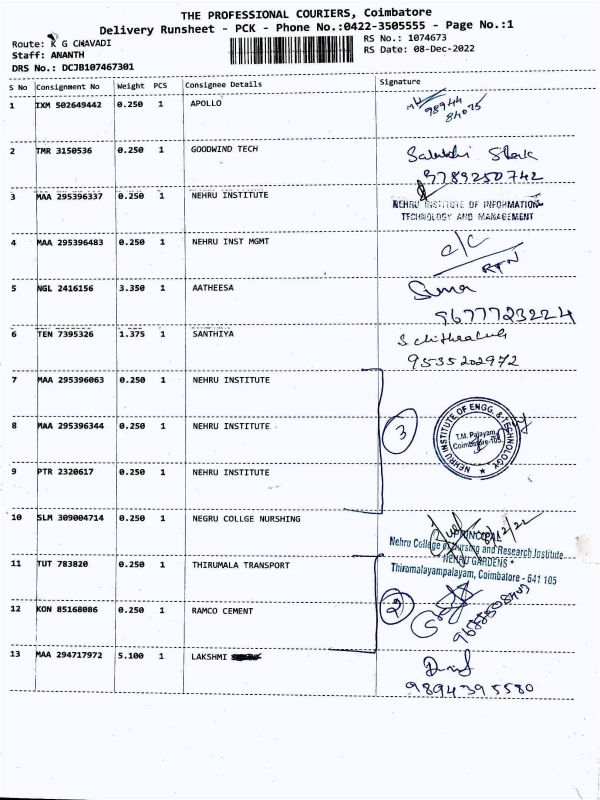 THE PROFESSIONAL COURIERS, Coimbatore
Delivery Runsheet - PCK - Phone No.:0422-3505555 - Page No.:1
Route: K G CHAVADI
RS No.: 1074673
Staff: ANANTH
RS Date: 08-Dec-2022
DRS No.: DCJB107467301
S No Consignment No Weight PCS Consignee Details Signature
1 IXM 502649442 0.250 1 APOLLO
98944
84075
2 TMR 3150536 0.250 1 GOODWIND TECH
9789250742
3 MAA 295396337 0.250 1 NEHRU INSTITUTE
NEHRU INSTITUTE OF INFORMATION
TECHNOLOGY AND MANAGEMENT
4 MAA 295396483 0.250 1 NEHRU INST MGMT
c/c
RTN
5 NGL 2416156 3.350 1 AATHEESA
Suma
96777232224
6 TEN 7395326 1.375 1 SANTHIYA
9535202972
7 MAA 295396063 0.250 1 NEHRU INSTITUTE
8 MAA 295396344 0.250 1 NEHRU INSTITUTE
3
NEHRU INSTITUTE OF ENGG. & TECHNOLOGY
T.M. Palayam,
Coimbatore-105.
9 PTR 2320617 0.250 1 NEHRU INSTITUTE
10 SLM 309004714 0.250 1 NEGRU COLLGE NURSHING
8/12/22
PRINCIPAL
Nehru College of Nursing and Research Institute
"NEHRU GARDENS"
Thirumalayampalayam, Coimbatore - 641 105
11 TUT 783820 0.250 1 THIRUMALA TRANSPORT
12 KON 85168086 0.250 1 RAMCO CEMENT
13 MAA 294717972 5.100 1 LAKSHMI
9894395580